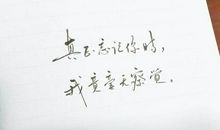 真正忘记你时,
我竟毫无察觉。